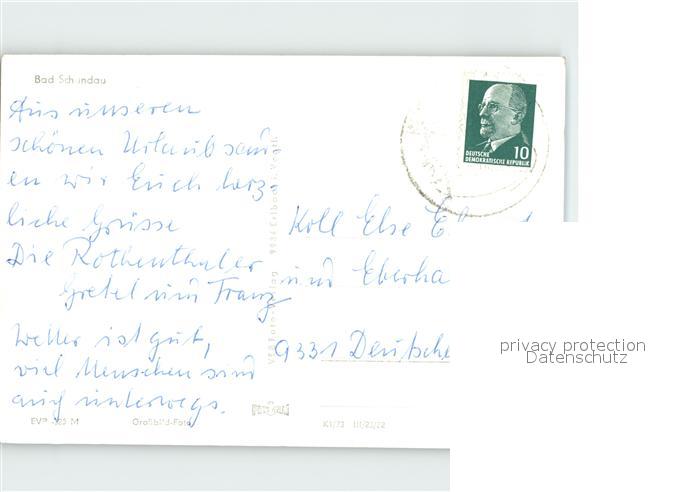 Bad Schandau
Aus unseren
schönen Urlaub send-
en wir Euch herz-
liche Grüsse
Die Rothenthaler
Gretel und Franz
Wetter ist gut,
viel Menschen sind
auch unterwegs.
Koll Else
und Eberha
9331 Deutsche
DEUTSCHE 10
DEMOKRATISCHE REPUBLIK
EVP M Großbild-Foto
K1/73 III/23/22
privacy protection
Datenschutz